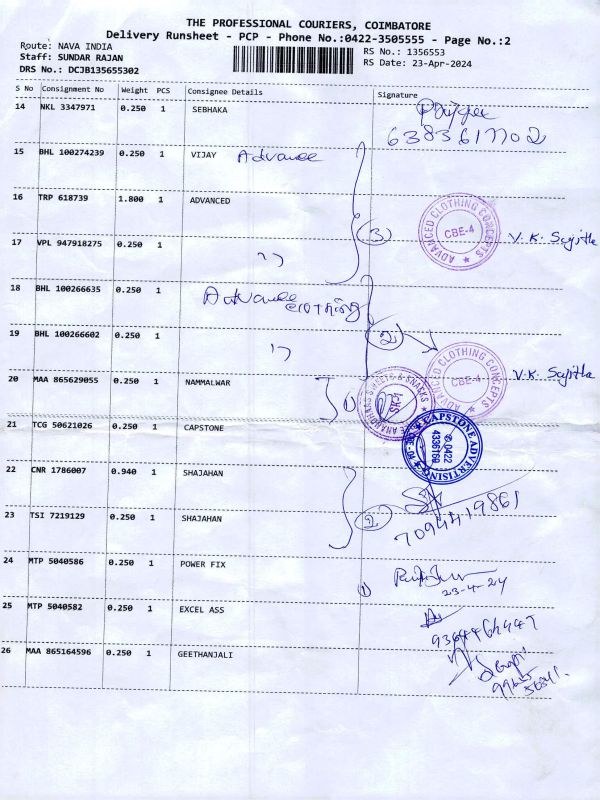 THE PROFESSIONAL COURIERS, COIMBATORE
Delivery Runsheet - PCP - Phone No.:0422-3505555 - Page No.:2
Route: NAVA INDIA
Staff: SUNDAR RAJAN
DRS No.: DCJB135655302
RS No.: 1356553
RS Date: 23-Apr-2024
S No Consignment No Weight PCS Consignee Details Signature
14 NKL 3347971 0.250 1 SEBHAKA
6383617702
15 BHL 100274239 0.250 1 VIJAY Advance
16 TRP 618739 1.800 1 ADVANCED
ADVANCED CLOTHING CONCEPTS CBE-4
3 V.K. Sujitha
17 VPL 947918275 0.250 1 ""
18 BHL 100266635 0.250 1 Advance clothing
19 BHL 100266602 0.250 1 ""
2
ADVANCED CLOTHING CONCEPTS CBE-4
V.K. Sujitha
20 MAA 865629055 0.250 1 NAMMALWAR
1
SWEETS & SNACKS
21 TCG 50621026 0.250 1 CAPSTONE
CAPSTONE ADVERTISING 0422 4336169
22 CNR 1786007 0.940 1 SHAJAHAN
23 TSI 7219129 0.250 1 SHAJAHAN
2
7094419861
24 MTP 5040586 0.250 1 POWER FIX
1
23-4-24
25 MTP 5040582 0.250 1 EXCEL ASS
26 MAA 865164596 0.250 1 GEETHANJALI